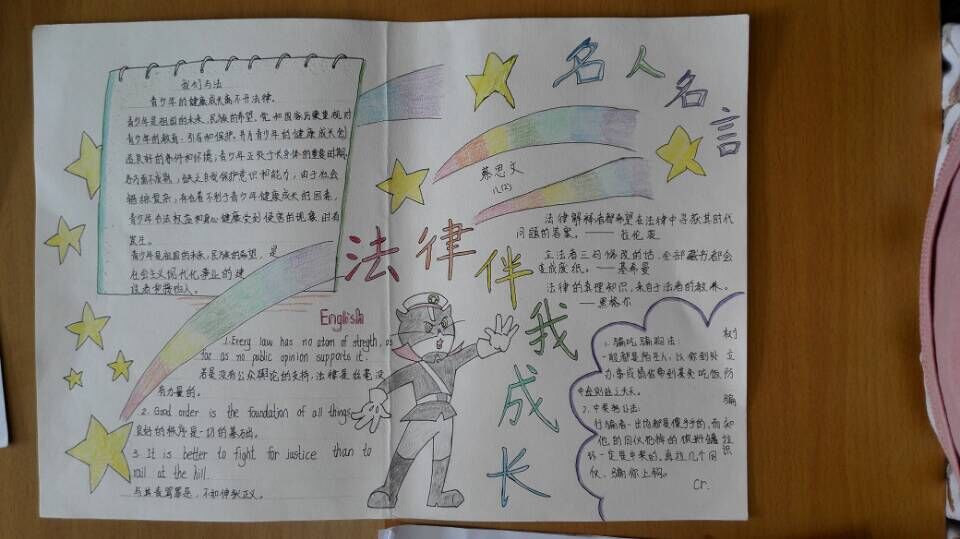 我们与法
青少年的健康成长离不开法律。
青少年是祖国的未来,民族的希望。党和国家历来重视对
青少年的教育、引导和保护,为青少年的健康成长创
造良好的条件和环境;青少年正处于长身体的重要时期,
各方面不成熟,缺乏自我保护意识和能力,由于社会
错综复杂,存在着不利于青少年健康成长的因素,
青少年合法权益和身心健康受到侵害的现象时有
发生。
青少年是祖国的未来,民族的希望,是
社会主义现代化事业的建
设者和接班人。
English
1.Every law has no atom of stregth, as
far as no public opinion supports it.
若是没有公众舆论的支持,法律是丝毫没
有力量的。
2. Good order is the foundation of all things.
良好的秩序是一切的基础。
3. It is better to fight for justice than to
rail at the hill.
与其责骂罪恶,不如伸张正义。
法律伴我成长
名人名言
蔡思文
法律解释者都希望在法律中寻获其时代
问题的答案。——拉伦茨
立法者三句修改的话,全部藏书都会
变成废纸。——基希曼
法律的真理知识,来自于法者的教养。
——黑格尔
权立防骗识
1. 骗吃骗喝法:
一般都是陌生人,以你到处
办事或搞价带到某处吃饭,
中途则逃之夭夭。
2. 中奖抱公法:
行骗者一出场都是傻乎乎的,而和
他的同伙
环一定是中奖的,再拉几个同
伙,骗你上钩。
Cr.